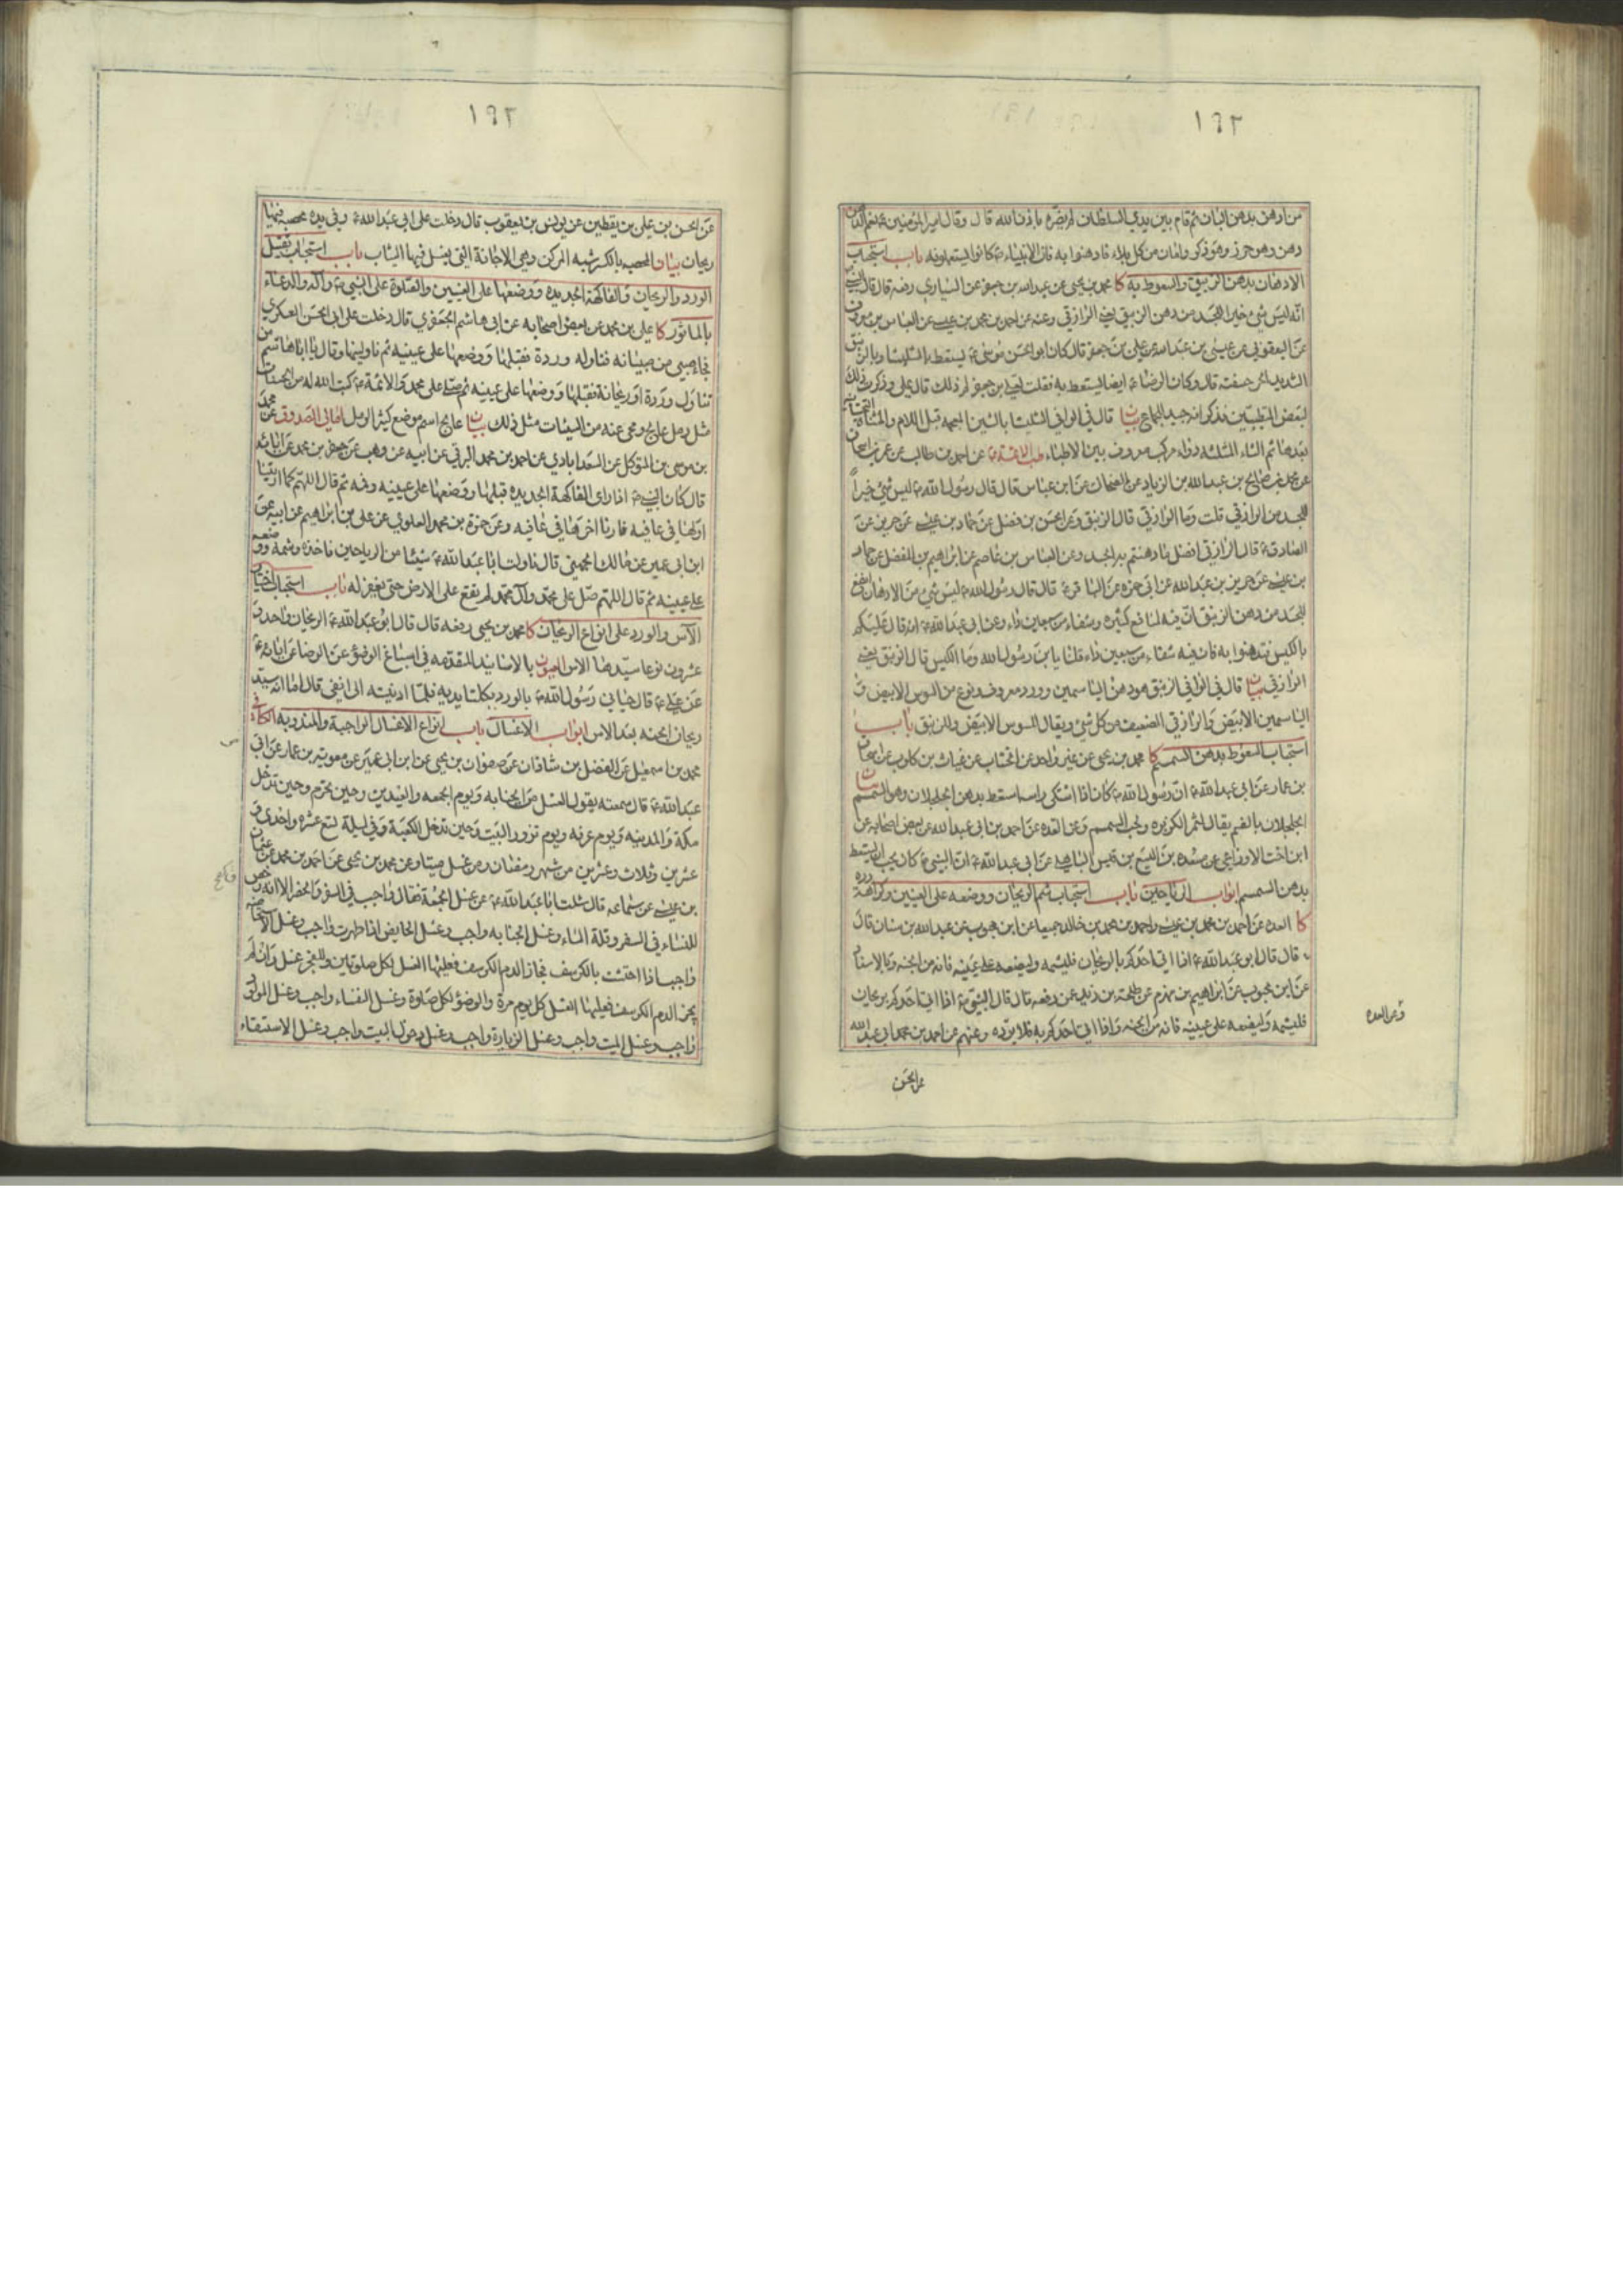 ١٩٢
من ادهن بدهن البان ثم قام بين يدي السلطان لم يضره باذن الله قال وقال امير المؤمنين ع نعم الدهن
دهن وهو حرز وهو ذكر وامان من كل بلاء فادهنوا به فان الانبياء ع كانوا يستعملونه باب استحباب
الادهان بدهن الزنبق والسعوط به كا محمد بن يحيى عن عبد الله بن جعفر عن السياري رفعه قال قال النبي
انه ليس شئ خيرا للجسد من دهن الزنبق يعني الرازقي وعنه عن احمد بن محمد بن عيسى عن العباس بن معروف
عن اليعقوبي عن عيسى بن عبد الله عن علي بن جعفر قال كان ابو الحسن موسى ع يستعط بالشليثا وبالزنبق
الشديد الحر خسفته قال وكان الرضا ع ايضا يستعط به فقلت لعلي بن جعفر لم ذلك قال علي وذكرت ذلك
لبعض المتطببين فذكر انه جيد للجماع بيان قال في الوافي الشليثا بالشين المعجمه قبل اللام والمثناة التحتانية
بعدها ثم الثاء المثلثه دواء مركب معروف بين الاطباء طب الائمة ع عن احمد بن طالب عن عمر بن اسحاق
عن محمد بن صالح بن عبد الله بن الزياد عن الضحاك عن ابن عباس قال قال رسول الله ص ليس شئ خيراً
للجسد من الرازقي قلت وما الرازقي قال الزنبق وعن الحسن بن فضل عن حماد بن عيسى عن حريز عن
الصادق ع قال الرازقي افضل ما دهنتم به الجسد وعن العباس بن عاصم عن ابراهيم بن المفضل عن حماد
بن عيسى عن حريز بن عبد الله عن ابي حمزه عن الباقر ع قال قال رسول الله ص ليس شئ من الادهان انفع
للجسد من دهن الزنبق ان فيه لمنافع كثيره وشفاء من سبعين داء وعن ابي عبد الله ع انه قال عليكم
بالكيس تدهنوا به فان فيه شفاء من سبعين داء قلنا يا بن رسول الله وما الكيس قال الزنبق يعني
الرازقي بيان قال في الوافي الزنبق هو دهن الياسمين وورد معروف ونوع من السوس الابيض و
الياسمين الابيض والرازقي الضعيف من كل شئ ويقال للسوس الابيض وللزنبق باب
استحباب السعوط بدهن السمسم كا محمد بن يحيى عن غير واحد عن الخشاب عن غياث بن كلوب عن اسحاق
بن عمار عن ابي عبد الله ع ان رسول الله ص كان اذا اشتكى راسه استعط بدهن الجلجلان وهو السمسم بيان
الجلجلان بالضم يقال لثمر الكزبره ولحب السمسم وعن العده عن احمد بن ابي عبد الله عن بعض اصحابه عن
ابن اخت الاوزاعي عن مسعده بن اليسع بن قيس الباهلي عن ابي عبد الله ع ان النبي ص كان يحب ان يستعط
بدهن السمسم ابواب الرياحين باب استحباب شم الريحان ووضعه على العينين وكراهة رده
كا العده عن احمد بن محمد بن عيسى واحمد بن محمد بن خالد جميعا عن ابن محبوب عن عبد الله بن سنان قال
قال قال ابو عبد الله ع اذا اتي احدكم بالريحان فليشمه وليضعه على عينيه فانه من الجنه وبالاسناد
عن ابن محبوب عن ابراهيم بن مهزم عن طلحة بن زيد عمن رفعه قال قال النبي ص اذا اتي احدكم بريحان
فليشمه وليضعه على عينيه فانه من الجنه واذا اتي احدكم به فلا يرده وعنهم عن احمد بن محمد ابي عبد الله
وعن العده
عن الحسن
١٩٢
عن الحسن بن علي بن يقطين عن يونس بن يعقوب قال دخلت على ابي عبد الله ع وفي يده مخضبه فيها
ريحان بيان المخضبه بالكسر شبه المركن وهي الاجانة التي يغسل فيها الثياب باب استحباب تقبيل
الورد والريحان والفاكهة الجديده ووضعها على العينين والصلوة على النبي ص وآله والدعاء
بالماثور كا علي بن محمد عن بعض اصحابه عن ابي هاشم الجعفري قال دخلت على ابي الحسن العسكري
فجاء صبي من صبيانه فناوله وردة فقبلها ووضعها على عينيه ثم ناولنيها وقال يا ابا هاشم من
تناول وردة او ريحانة فقبلها ووضعها على عينيه ثم صلى على محمد والائمة ع كتب الله له من الحسنات
مثل رمل عالج ومحى عنه من السيئات مثل ذلك بيان عالج اسم موضع كثير الرمل امالي الصدوق عن محمد
بن موسى بن المتوكل عن السعدابادي عن احمد بن محمد البرقي عن ابيه عن وهب عن جعفر بن محمد عن ابائه
قال كان النبي ص اذا راى الفاكهة الجديده قبلها ووضعها على عينيه وفمه ثم قال اللهم كما اريتنا
اولها في عافيه فارنا اخرها في عافيه وعن حمزة بن محمد العلوي عن علي بن ابراهيم عن ابيه عن
ابن ابي عمير عن مالك الجهني قال ناولت ابا عبد الله ع شيئا من الرياحين فاخذه وشمه ووضعه
على عينيه ثم قال اللهم صل على محمد وآل محمد لم يقع على الارض حتى يغفر له باب استحباب اختيار
الآس والورد على انواع الريحان كا محمد بن يحيى رفعه قال قال ابو عبد الله ع الريحان واحد و
عشرون نوعا سيدها الاس العيون بالاسانيد المتقدمه في اسباغ الوضوء عن الرضا عن ابائه ع
عن علي ع قال حباني رسول الله ص بالورد بكلتا يديه فلما ادنيته الى انفي قال اما انه سيد
ريحان الجنه بعد الاس ابواب الاغسال باب انواع الاغسال الواجبة والمندوبه الكافي
محمد بن اسمعيل عن الفضل بن شاذان عن صفوان بن يحيى عن ابن ابي عمير عن معويه بن عمار عن ابي
عبد الله ع قال سمعته يقول الغسل من الجنابه ويوم الجمعه والعيدين وحين تحرم وحين تدخل
مكة والمدينه ويوم عرفه ويوم تزور البيت وحين تدخل الكعبة وفي ليلة تسع عشره واحدى و
عشرين وثلاث وعشرين من شهر رمضان ومن غسل ميتا وعن محمد بن يحيى عن احمد بن محمد عن عثمان
بن عيسى عن سماعه قال سئلت ابا عبد الله ع عن غسل الجمعة فقال واجب في السفر والحضر الا انه رخص
للنساء في السفر وقلة الماء وغسل الجنابه واجب وغسل الحايض اذا طهرت واجب وغسل الاستحاضه
واجب اذا احتشت بالكرسف فجاز الدم الكرسف فعليها الغسل لكل صلوتين وللفجر غسل وان لم
يجز الدم الكرسف فعليها الغسل كل يوم مرة والوضوء لكل صلوة وغسل النفساء واجب وغسل المولود
واجب وغسل الميت واجب وغسل الزيارة واجب وغسل دخول البيت واجب وغسل الاستسقاء